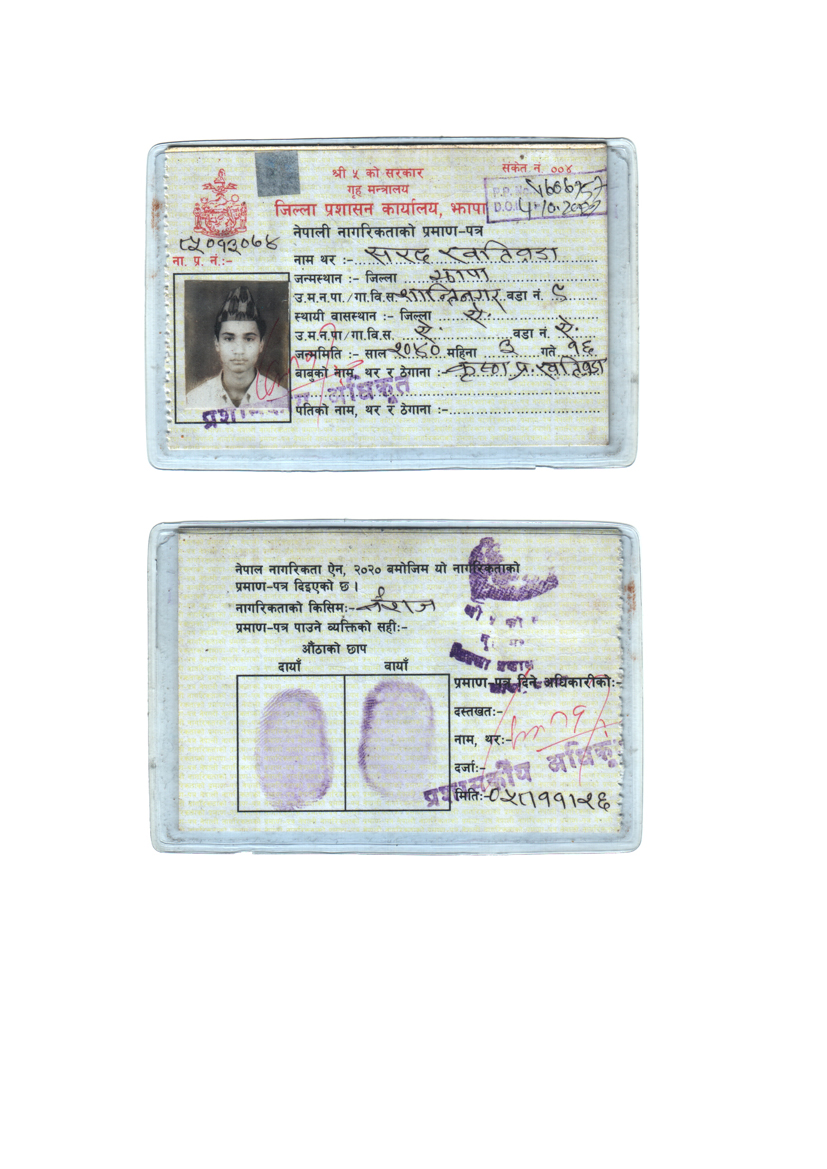 श्री ५ को सरकार
गृह मन्त्रालय
जिल्ला प्रशासन कार्यालय, झापा
संकेत नं ००४
P.P. No.
D.O.I.
नेपाली नागरिकताको प्रमाण-पत्र
ना. प्र. नं.:-
नाम थर :- सरद खतिवडा
जन्मस्थान :- जिल्ला झापा
उ.म.न.पा./गा.वि.स. शान्तिनगर वडा नं. ९
स्थायी वासस्थान :- जिल्ला ऐ.
उ.म.न.पा./गा.वि.स. ऐ. वडा नं. ऐ.
जन्ममिति :- साल २०४० महिना ३ गते १६
बाबुको नाम, थर र ठेगाना :- कृष्ण प्र. खतिवडा
प्रशासकीय अधिकृत
पतिको नाम, थर र ठेगाना :-
नेपाल नागरिकता ऐन, २०२० बमोजिम यो नागरिकताको
प्रमाण-पत्र दिइएको छ ।
नागरिकताको किसिम:- वंशज
प्रमाण-पत्र पाउने व्यक्तिको सही:-
औंठाको छाप
दायाँ बायाँ
प्रमाण-पत्र दिने अधिकारीको:-
दस्तखत:-
नाम, थर:-
दर्जा:-
प्रशासकीय अधिकृत
मिति:-